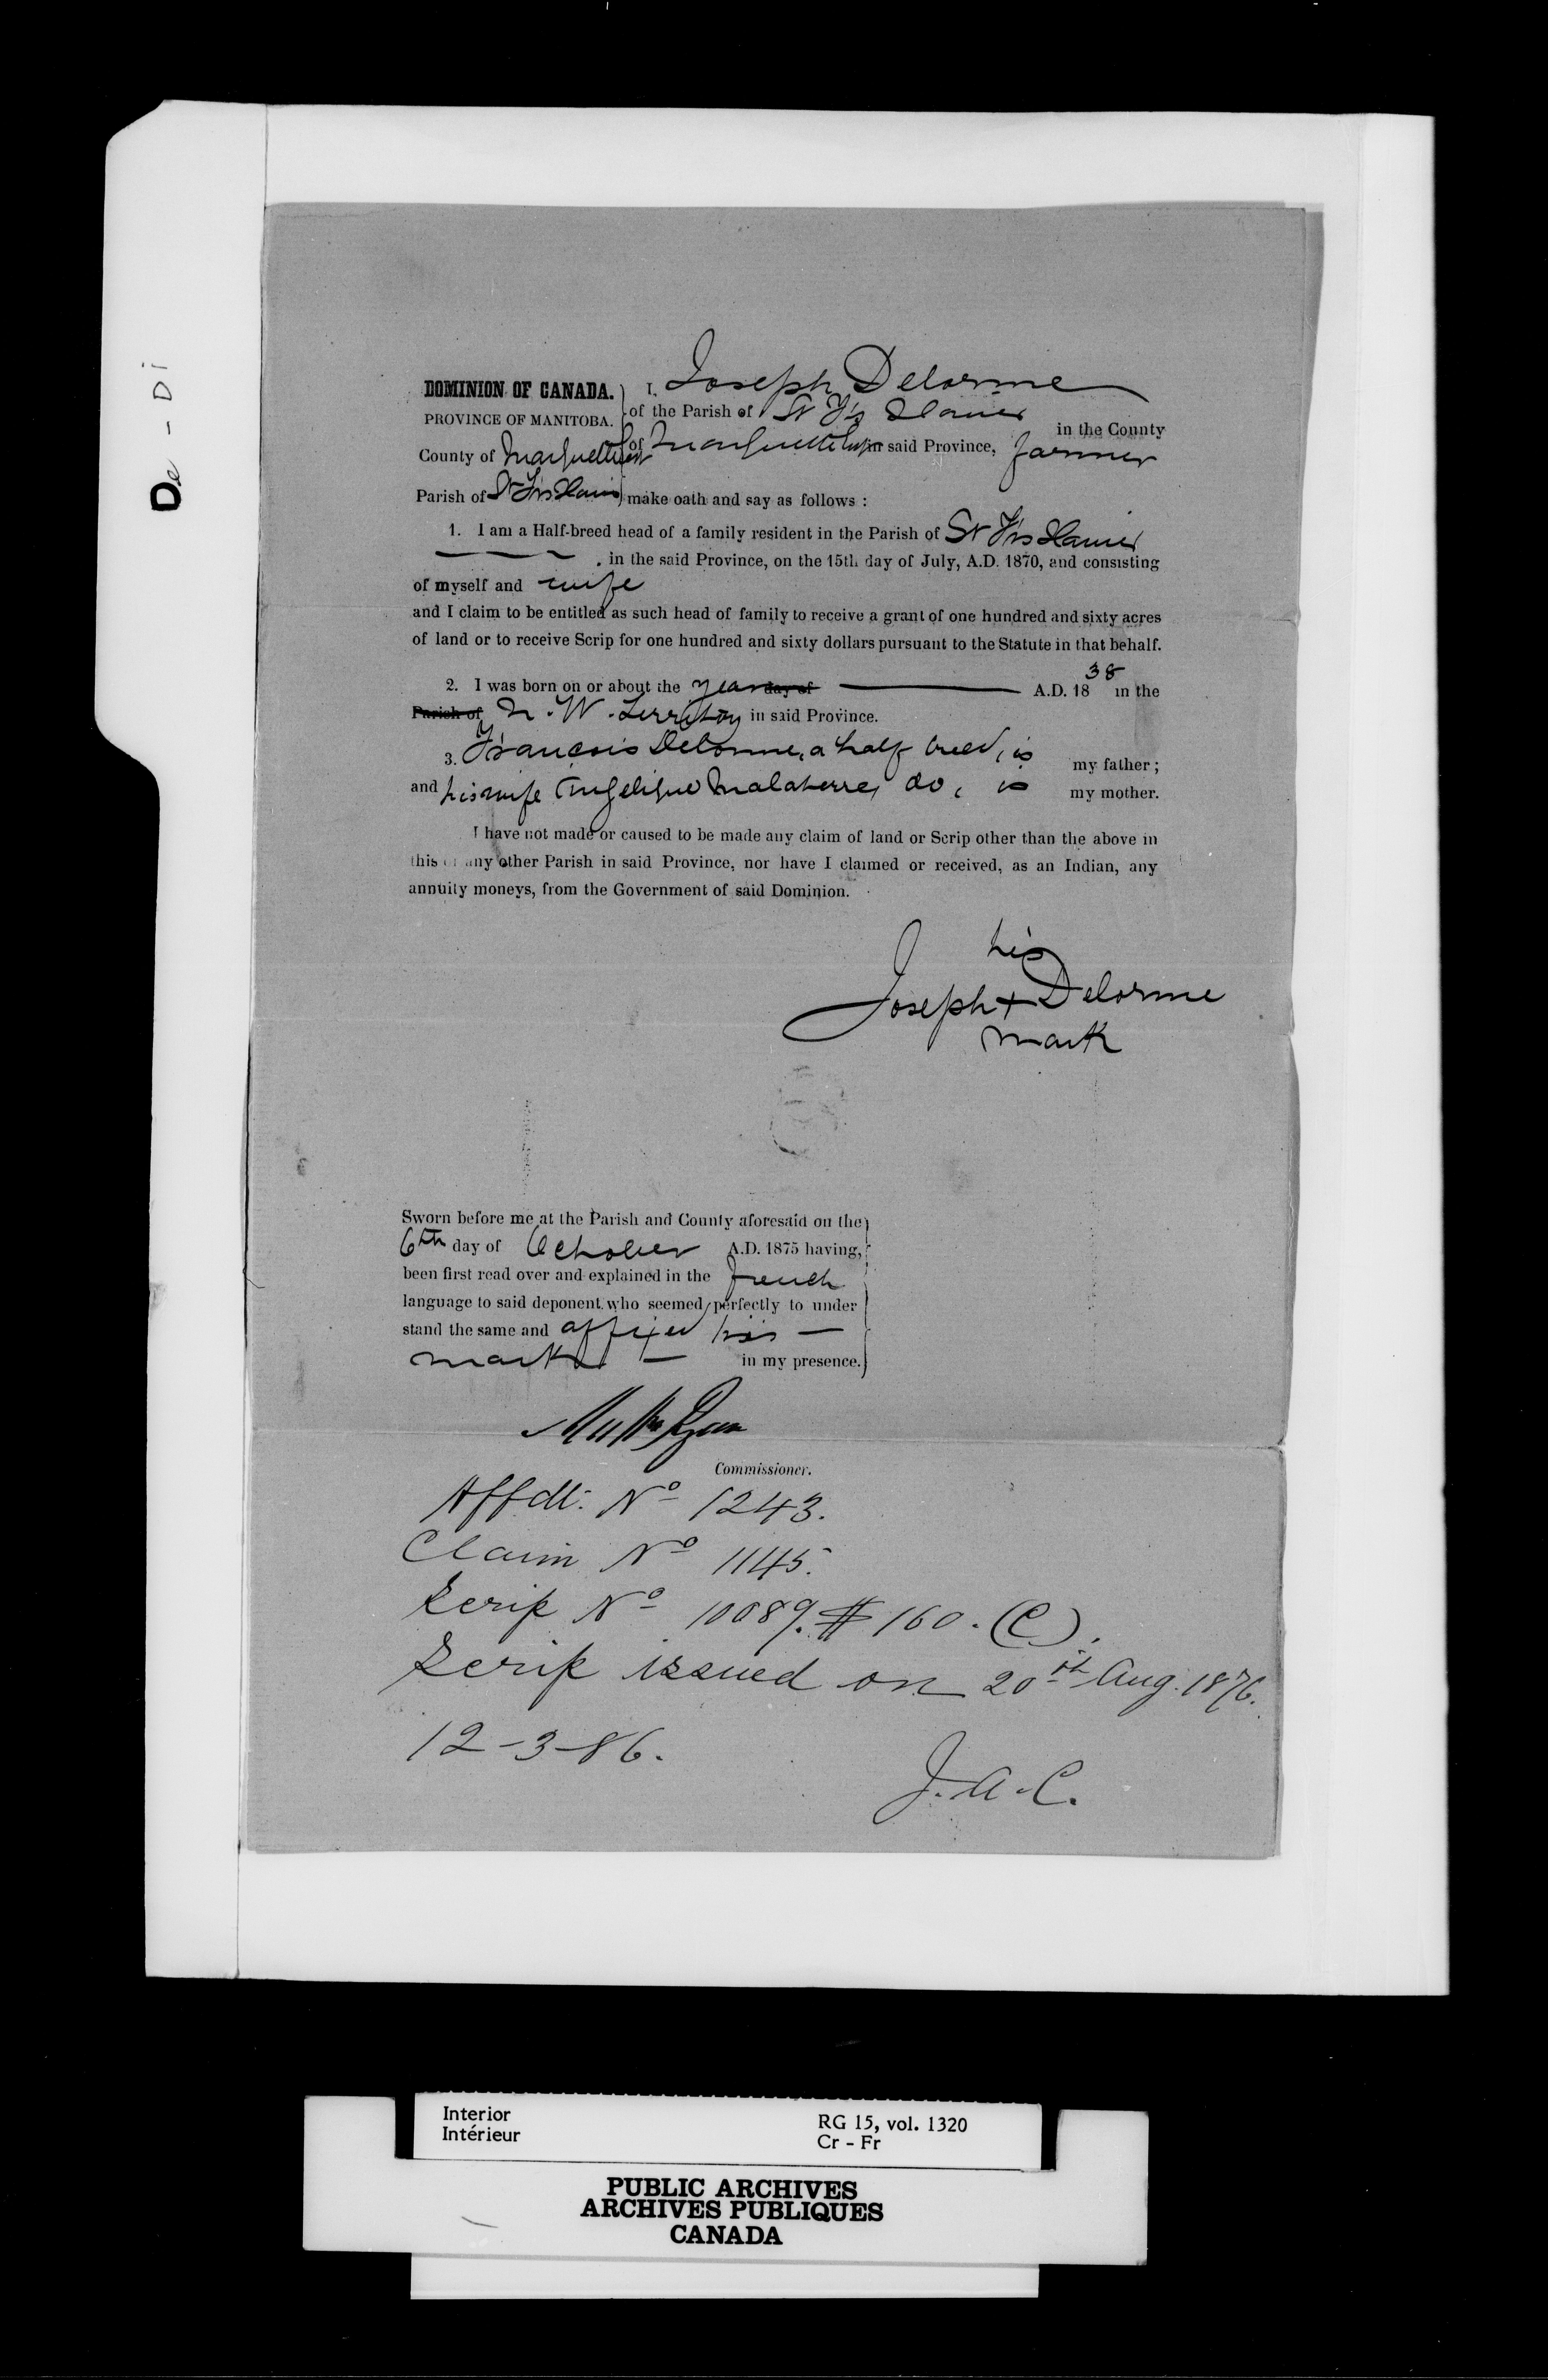 De - Di
DOMINION OF CANADA.
PROVINCE OF MANITOBA.
County of Marquette
Parish of St Frs Xavier
I, Joseph Delorme
of the Parish of St Frs Xavier in the County
of Marquette in said Province, farmer
make oath and say as follows :
1. I am a Half-breed head of a family resident in the Parish of St Frs Xavier
in the said Province, on the 15th day of July, A.D. 1870, and consisting
of myself and wife
and I claim to be entitled as such head of family to receive a grant of one hundred and sixty acres
of land or to receive Scrip for one hundred and sixty dollars pursuant to the Statute in that behalf.
2. I was born on or about the year day of A.D. 1838 in the
Parish of N. W. Territory in said Province.
3. François Delorme, a half breed, is my father ;
and his wife Angelique Malaterre, do, is my mother.
I have not made or caused to be made any claim of land or Scrip other than the above in
this or any other Parish in said Province, nor have I claimed or received, as an Indian, any
annuity moneys, from the Government of said Dominion.
his
Joseph + Delorme
mark
Sworn before me at the Parish and County aforesaid on the
6th day of October A.D. 1875 having,
been first read over and explained in the french
language to said deponent who seemed perfectly to under
stand the same and affixed his
mark in my presence.
Ryan
Commissioner.
Affdt. No 1243.
Claim No 1145.
Scrip No 10089. $160. (C).
Scrip issued on 20th Aug. 1876.
12-3-86.
J. A. C.
Interior
Intérieur
RG 15, vol. 1320
Cr - Fr
PUBLIC ARCHIVES
ARCHIVES PUBLIQUES
CANADA